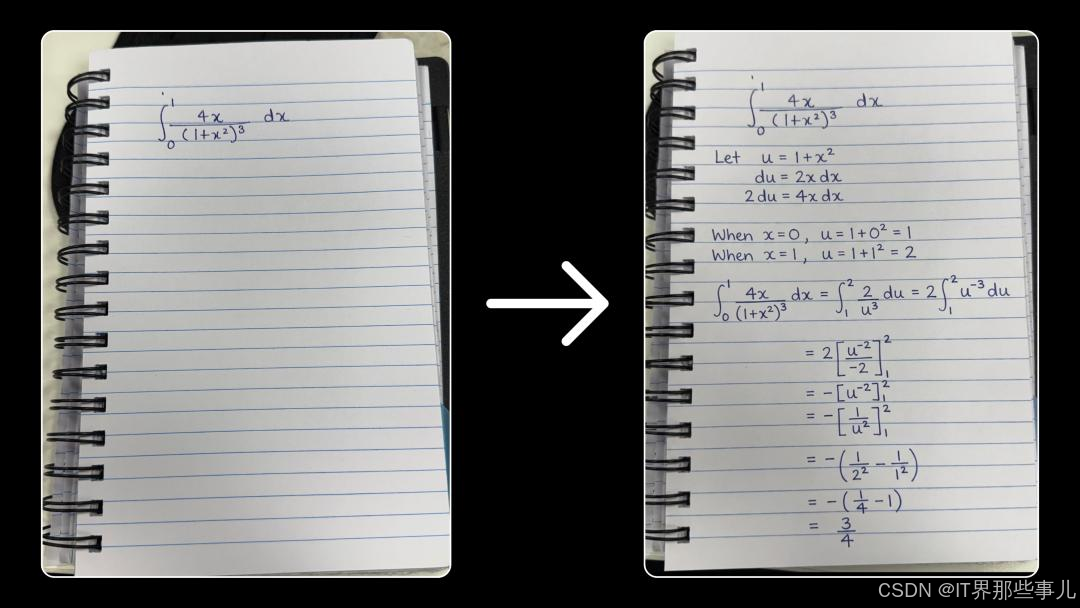 ∫₀¹ 4x/(1+x²)³ dx
∫₀¹ 4x/(1+x²)³ dx
Let u = 1+x²
du = 2x dx
2du = 4x dx
When x=0, u = 1+0² = 1
When x=1, u = 1+1² = 2
∫₀¹ 4x/(1+x²)³ dx = ∫₁² 2/u³ du = 2∫₁² u⁻³ du
= 2[u⁻²/-2]₁²
= -[u⁻²]₁²
= -[1/u²]₁²
= -(1/2² - 1/1²)
= -(1/4 - 1)
= 3/4
CSDN @IT界那些事儿